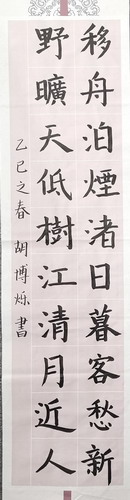 移舟泊煙渚日暮客愁新
野曠天低樹江清月近人
乙巳之春 胡博烁書